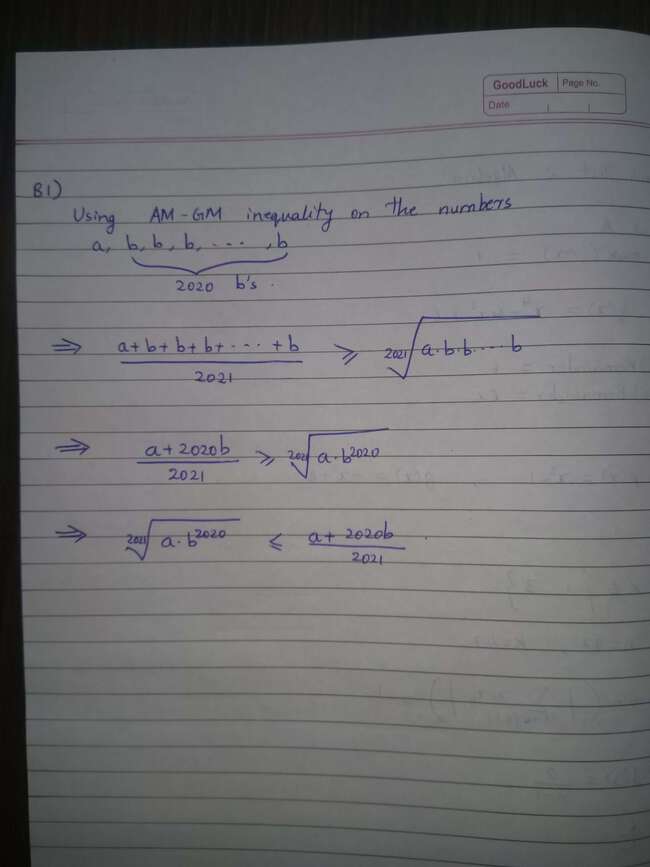 GoodLuck Page No.
Date
B1)
Using AM-GM inequality on the numbers
a, b, b, b, ..., b
2020 b's.
⇒ (a+b+b+b+...+b)/2021 ⩾ ²⁰²¹√(a·b·b....b)
⇒ (a+2020b)/2021 ⩾ ²⁰²¹√(a·b²⁰²⁰)
⇒ ²⁰²¹√(a·b²⁰²⁰) ⩽ (a+2020b)/2021